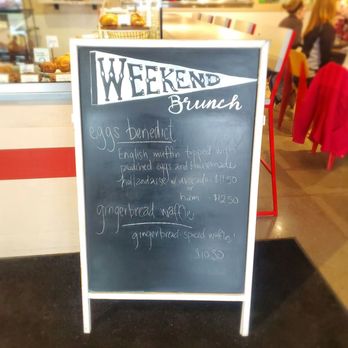 WEEKEND
Brunch
eggs benedict
English muffin topped with
poached eggs and housemade
hollandaise w avocado $11.50
or
ham $12.50
gingerbread waffle
gingerbread spiced waffle!
$10.50